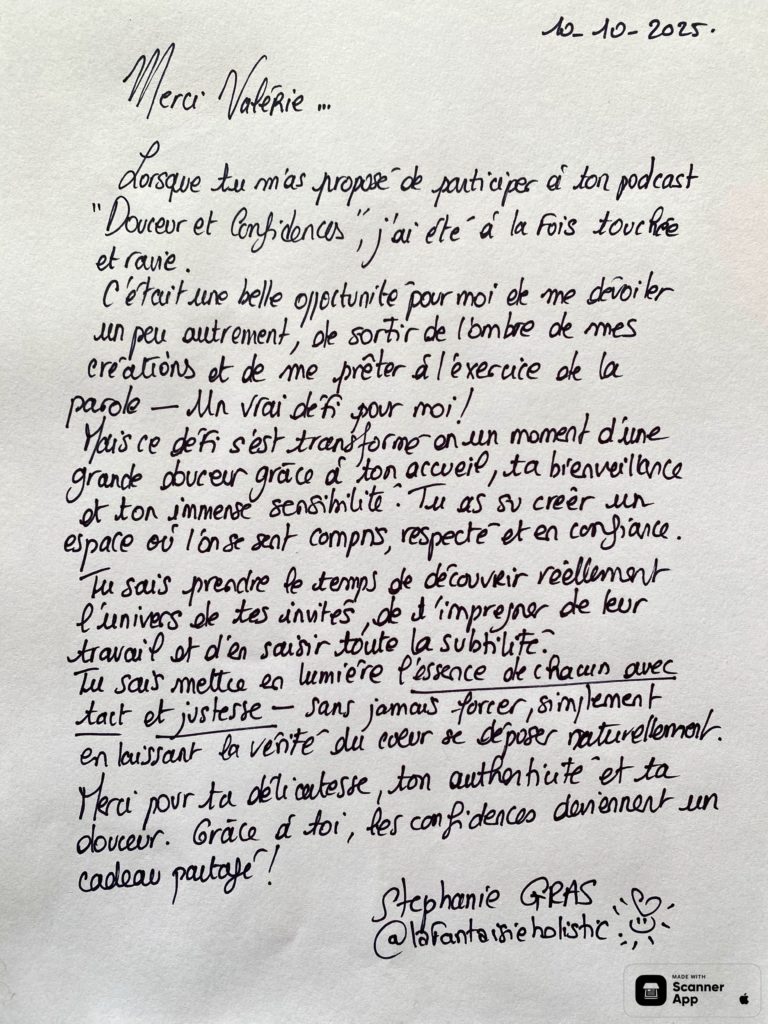 10-10-2025.
Merci Valérie...
Lorsque tu m'as proposé de participer à ton podcast
"Douceur et Confidences", j'ai été à la fois touchée
et ravie.
C'était une belle opportunité pour moi de me dévoiler
un peu autrement, de sortir de l'ombre de mes
créations et de me prêter à l'exercice de la
parole — Un vrai défi pour moi!
Mais ce défi s'est transformé en un moment d'une
grande douceur grâce à ton accueil, ta bienveillance
et ton immense sensibilité. Tu as su créer un
espace où l'on se sent compris, respecté et en confiance.
Tu sais prendre le temps de découvrir réellement
l'univers de tes invités, de t'impregner de leur
travail et d'en saisir toute la subtilité.
Tu sais mettre en lumière l'essence de chacun avec
tact et justesse — sans jamais forcer, simplement
en laissant la vérité du coeur se déposer naturellement.
Merci pour ta délicatesse, ton authenticité et ta
douceur. Grâce à toi, les confidences deviennent un
cadeau partagé!
Stephanie GRAS
@lafantaisieholistic.
MADE WITH
Scanner
App